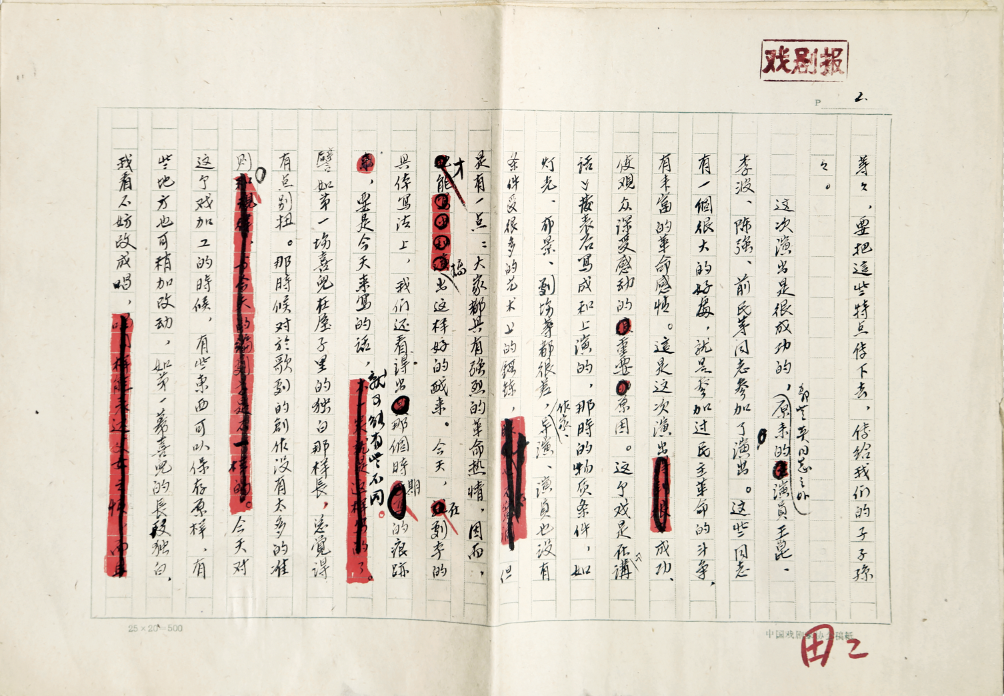 戏剧报
P 2.
等々，要把這些特点传下去，传给我们的子子孫
々。
這次演出是很成功的，原来的演員王昆、
郭兰英同志之外
李波、陈强、前民等同志参加了演出。这些同志
有一個很大的好處，就是参加过民主革命的斗争，
有丰富的革命感情。這是这次演出成功、
使观众深受感动的重要原因。这个戏是在講
話以後表台寫成和上演的，那時的物质条件，如
灯光、布景、剧场等都很差，导演、演員也没有
作家、
条件受很多的艺术上的鍛鍊， 但
是有一点：大家都具有強烈的革命热情，因而，
才能 搞出这样好的戲来。今天，在剧本的
具体寫法上，我们还看得出那個時期的痕跡
，要是今天来寫的话，就可能有些不同。
譬如第一場喜兒在屋子里的独白那样長，总覺得
有点别扭。那時候对於歌剧的創作没有太多的准
则 。今天对
这个戏加工的時候，有些東西可以保存原样，有
些地方也可稍加改动，如第一幕喜兒的長段独白，
我看不妨改成唱，
25×20=500
中国戏剧 稿紙
田 2